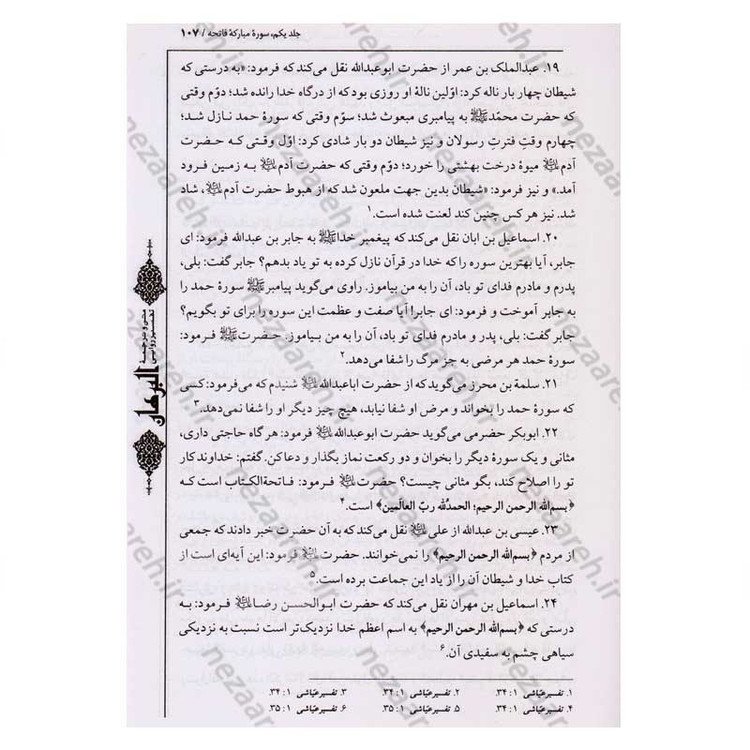 جلد یکم، سورۀ مبارکۀ فاتحه / ۱۰۷
۱۹. عبدالملک بن عمر از حضرت ابوعبدالله نقل می‌کند که فرمود: «به درستی که
شیطان چهار بار ناله کرد: اوّلین نالۀ او روزی بود که از درگاه خدا رانده شد؛ دوّم وقتی
که حضرت محمّدﷺ به پیامبری مبعوث شد؛ سوّم وقتی که سورۀ حمد نازل شد؛
چهارم وقتِ فترتِ رسولان و نیز شیطان دو بار شادی کرد: اوّل وقتی که حضرت
آدم میوۀ درخت بهشتی را خورد؛ دوّم وقتی که حضرت آدم به زمین فرود
آمد.» و نیز فرمود: «شیطان بدین جهت ملعون شد که از هبوط حضرت آدم، شاد
شد. نیز هر کس چنین کند لعنت شده است.۱
۲۰. اسماعیل بن ابان نقل می‌کند که پیغمبر خداﷺ به جابر بن عبدالله فرمود: ای
جابر، آیا بهترین سوره را که خدا در قرآن نازل کرده به تو یاد بدهم؟ جابر گفت: بلی،
پدرم و مادرم فدای تو باد، آن را به من بیاموز. راوی می‌گوید پیامبرﷺ سورۀ حمد را
به جابر آموخت و فرمود: ای جابر! آیا صفت و عظمت این سوره را برای تو بگویم؟
جابر گفت: بلی، پدر و مادرم فدای تو باد، آن را به من بیاموز. حضرتﷺ فرمود:
سورۀ حمد هر مرضی به جز مرگ را شفا می‌دهد.۲
۲۱. سلمة بن محرز می‌گوید که از حضرت اباعبدالله شنیدم که می‌فرمود: کسی
که سورۀ حمد را بخواند و مرض او شفا نیابد، هیچ چیز دیگر او را شفا نمی‌دهد.۳
۲۲. ابوبکر حضرمی می‌گوید حضرت ابوعبدالله فرمود: هر گاه حاجتی داری،
مثانی و یک سورۀ دیگر را بخوان و دو رکعت نماز بگذار و دعا کن. گفتم: خداوند کار
تو را اصلاح کند، بگو مثانی چیست؟ حضرت فرمود: فاتحةالکتاب است که
﴿بسم‌الله الرحمن الرحیم؛ الحمدُلله ربّ العالَمین﴾ است.۴
۲۳. عیسی بن عبدالله از علی نقل می‌کند که به آن حضرت خبر دادند که جمعی
از مردم ﴿بسم‌الله الرحمن الرحیم﴾ را نمی‌خوانند. حضرت فرمود: این آیه‌ای است از
کتاب خدا و شیطان آن را از یاد این جماعت برده است.۵
۲۴. اسماعیل بن مهران نقل می‌کند که حضرت ابوالحسن رضا فرمود: به
درستی که ﴿بسم‌الله الرحمن الرحیم﴾ به اسم اعظم خدا نزدیک‌تر است نسبت به نزدیکی
سیاهی چشم به سفیدی آن.۶
۱. تفسیر عیّاشی ۱: ۳۴. ۲. تفسیر عیّاشی ۱: ۳۴. ۳. تفسیر عیّاشی ۱: ۳۴.
۴. تفسیر عیّاشی ۱: ۳۴. ۵. تفسیر عیّاشی ۱: ۳۵. ۶. تفسیر عیّاشی ۱: ۳۵.
متن و ترجمۀ
تفسیر روایی
البرهان
nezaareh.ir